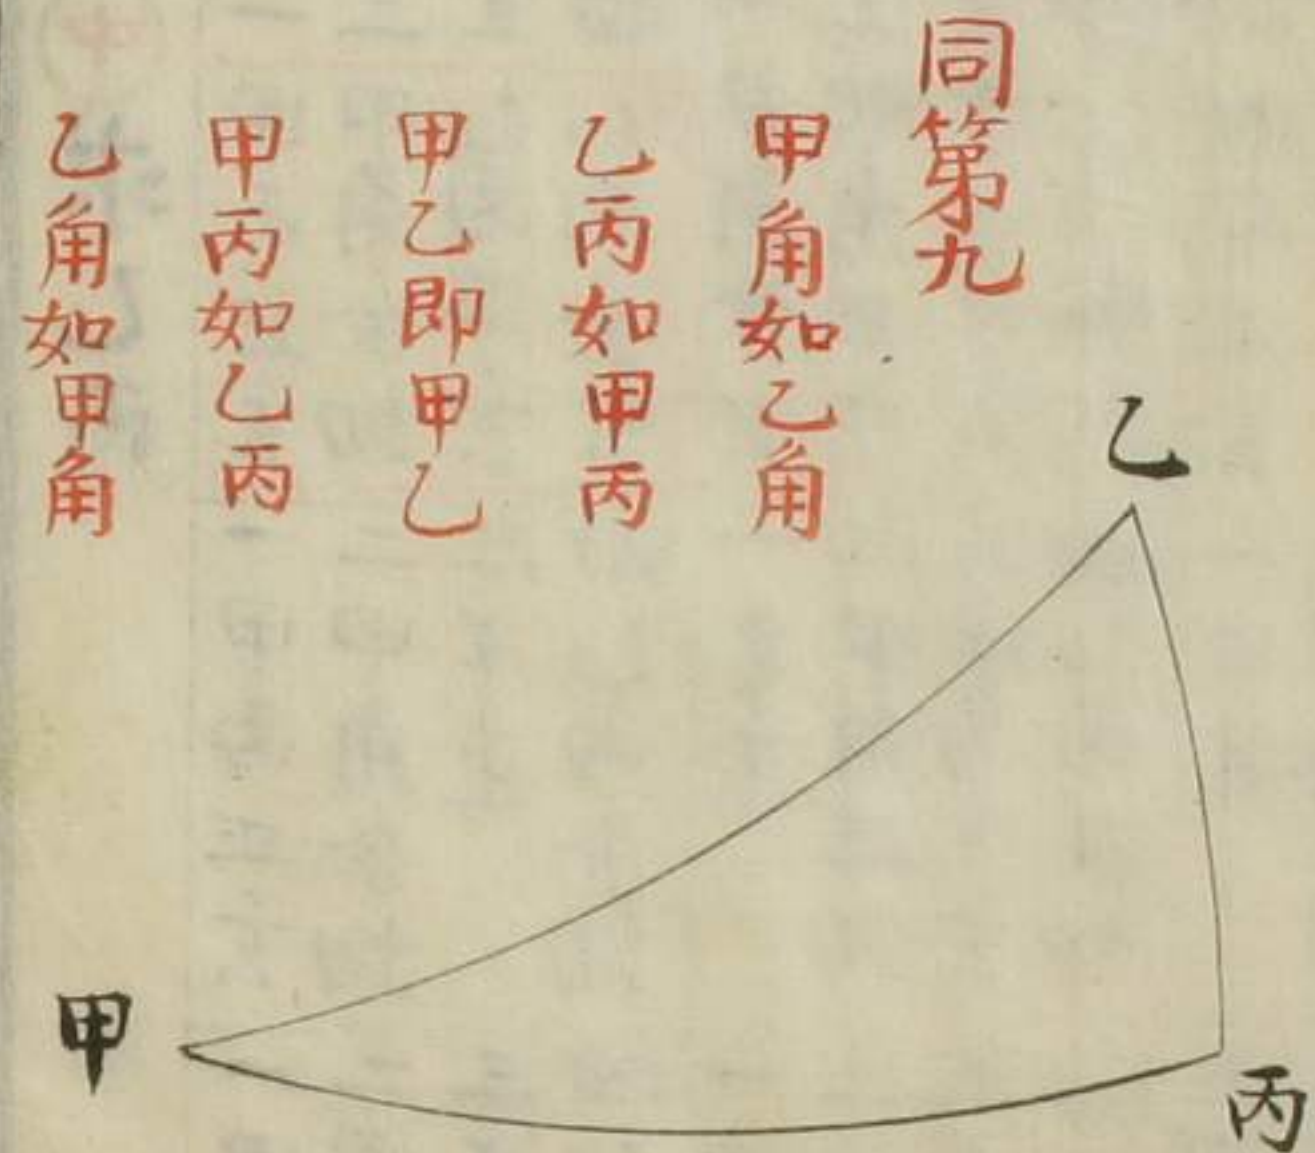 同第九
甲角如乙角
乙丙如甲丙
甲乙即甲乙
甲丙如乙丙
乙角如甲角
乙
丙
甲